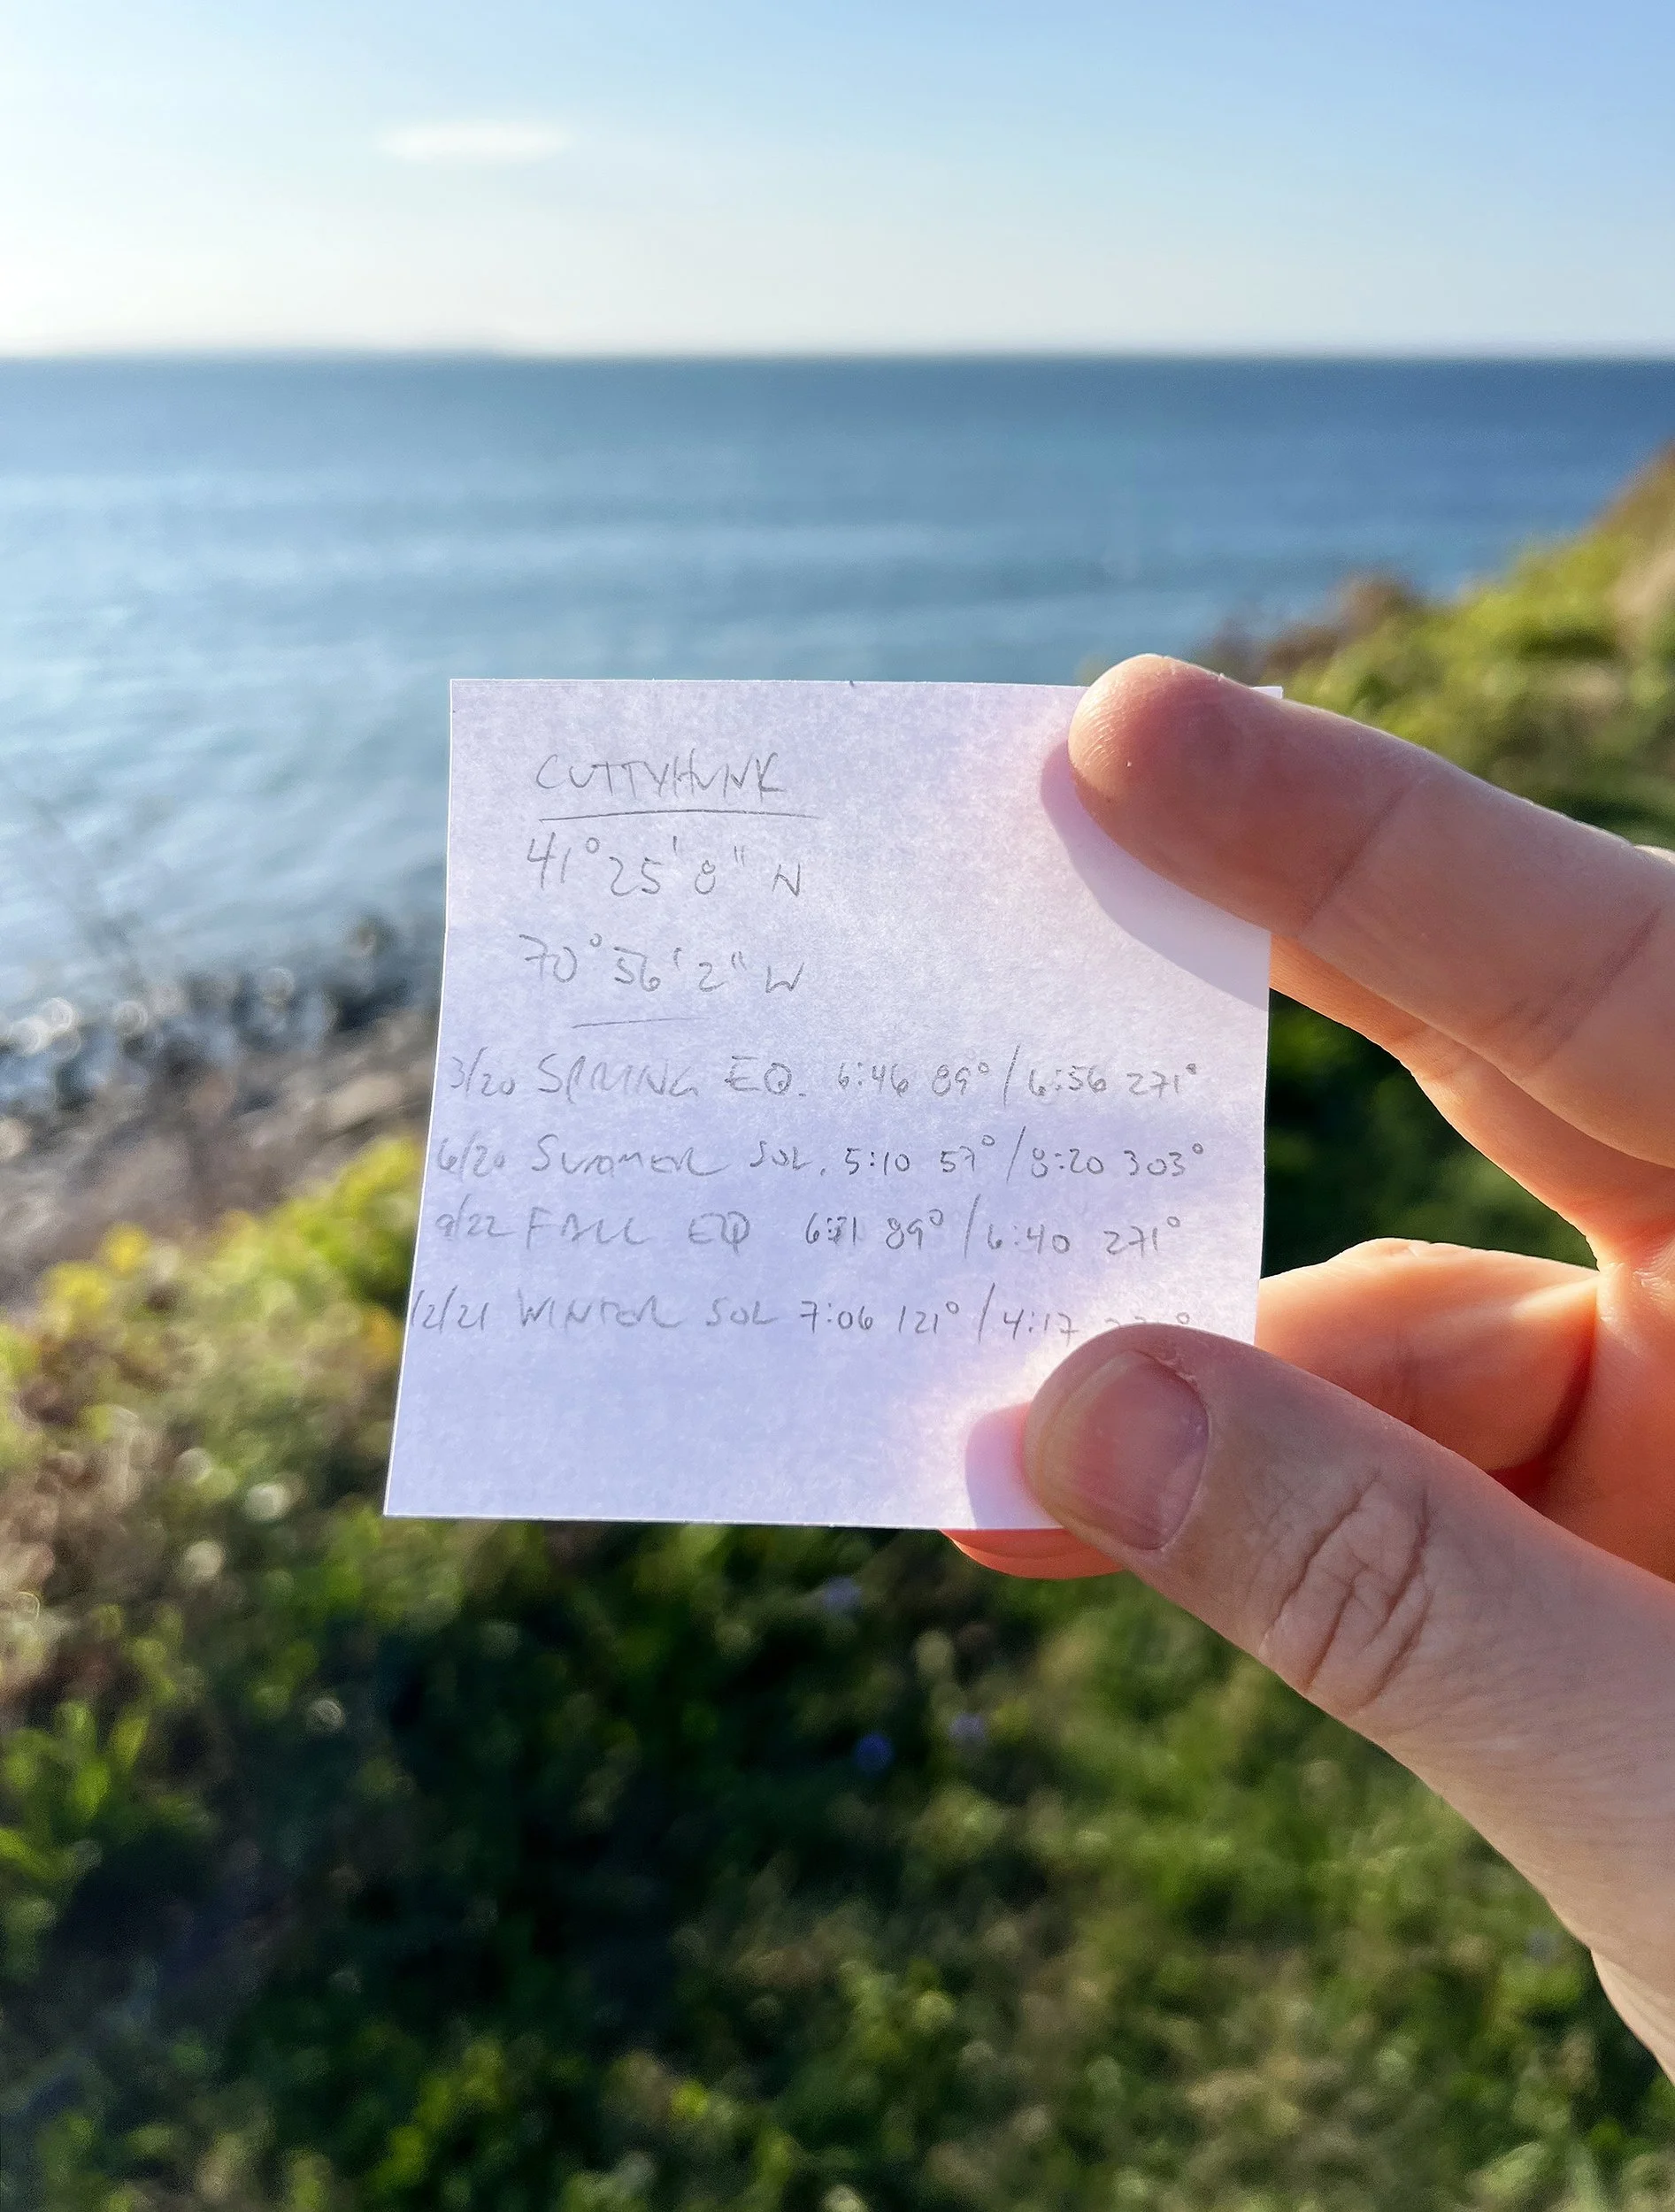 CUTTYHUNK
41° 25' 8" N
70° 56' 2" W
3/20 SPRING EQ. 6:46 89° / 6:56 271°
6/20 SUMMER SOL. 5:10 57° / 8:20 303°
9/22 FALL EQ 6:31 89° / 6:40 271°
12/21 WINTER SOL 7:06 121° / 4:17